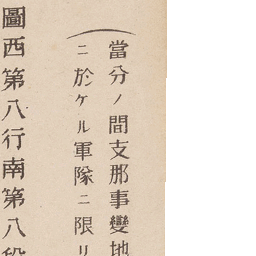 當分ノ間支那事變地
ニ於ケル軍隊ニ限リ
圖西第八行南第八段